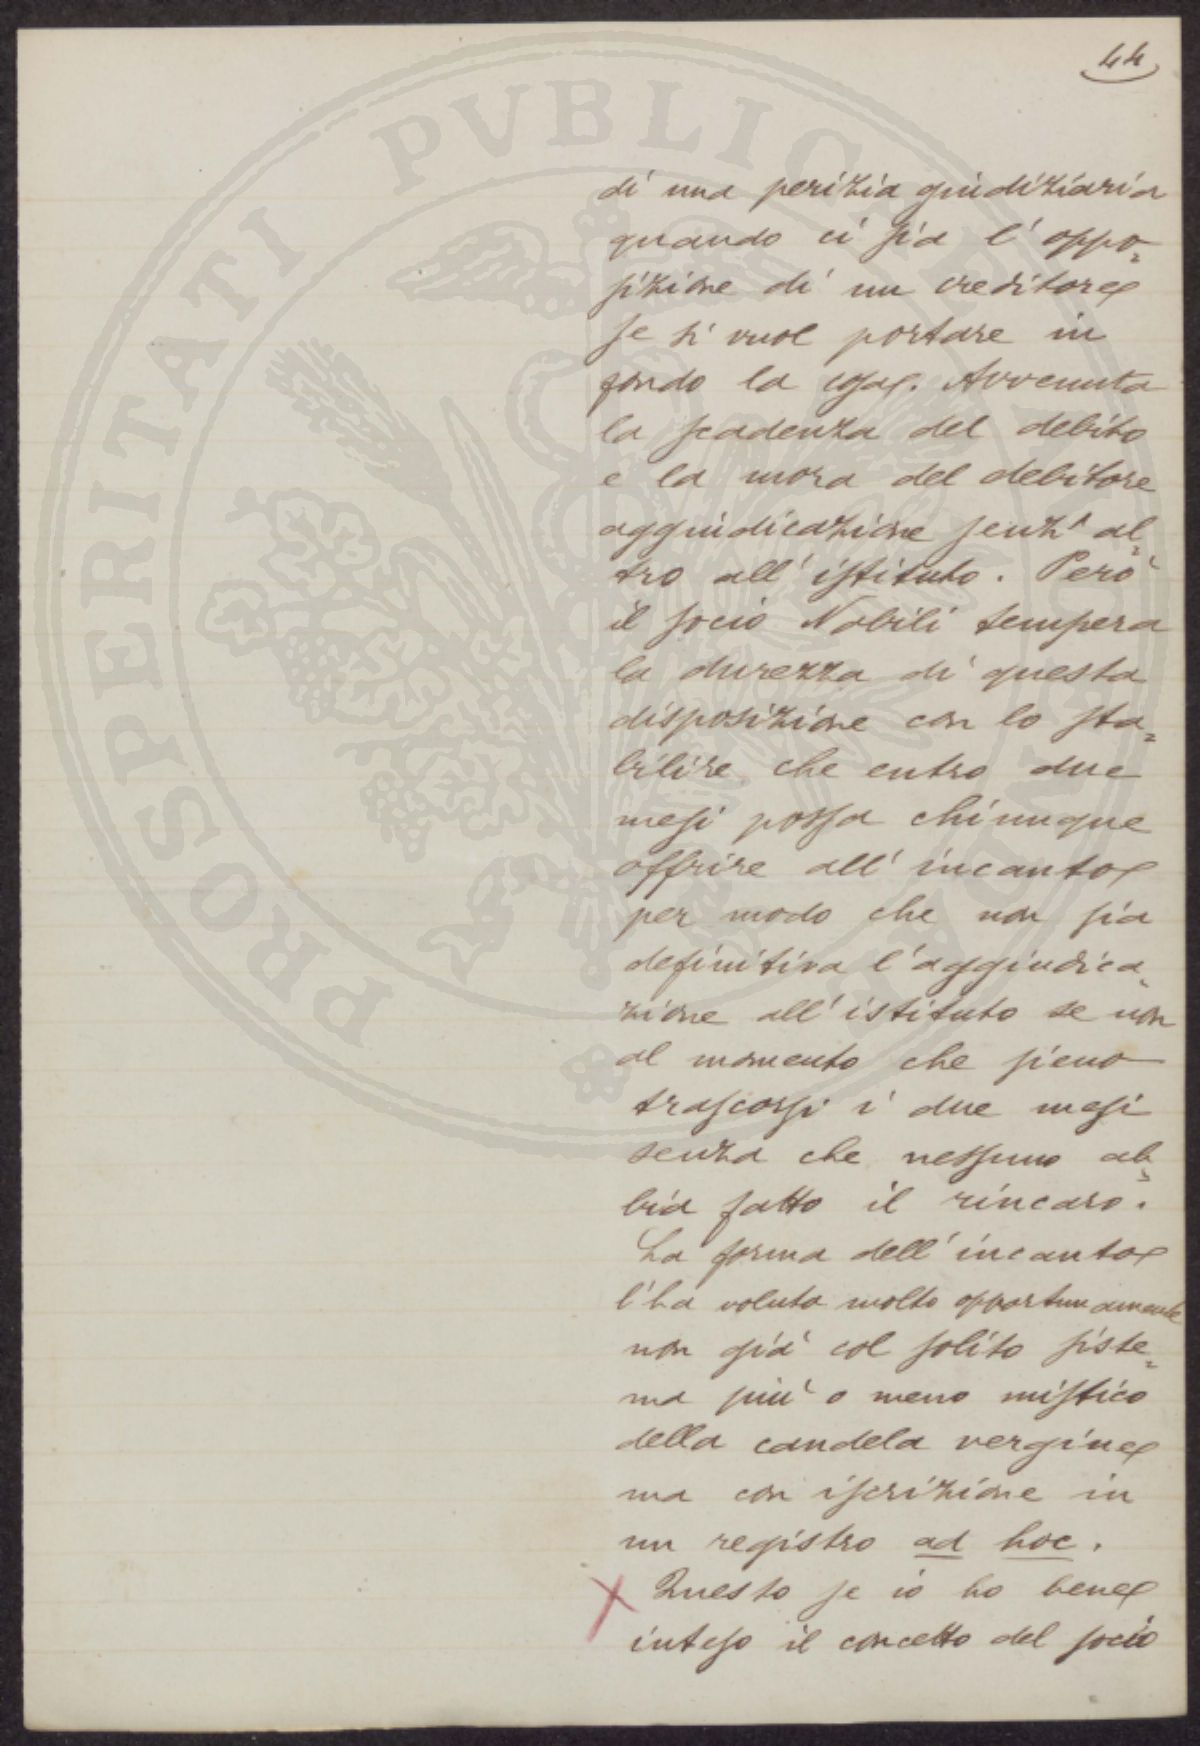 44
di una perizia giudiziaria
quando ci sia l'oppo=
sizione di un creditore
se si vuol portare in
fondo la cosa. Avvenuta
la scadenza del debito
e la mora del debitore
aggiudicazione senz'al=
tro all'istituto. Però
il socio Nobili tempera
la durezza di questa
disposizione con lo sta=
bilire che entro due
mesi possa chiunque
offrire all'incanto
per modo che non sia
definitiva l'aggiudica=
zione all'istituto se non
al momento che sieno
trascorsi i due mesi
senza che nessuno ab=
bia fatto il rincaro.
La forma dell'incanto
l'ha voluta molto opportunamente
non già col solito siste=
ma più o meno mistico
della candela vergine
ma con iscrizione in
un registro ad hoc.
Questo se io ho bene
inteso il concetto del socio
PROSPERITATI PVBLICAE